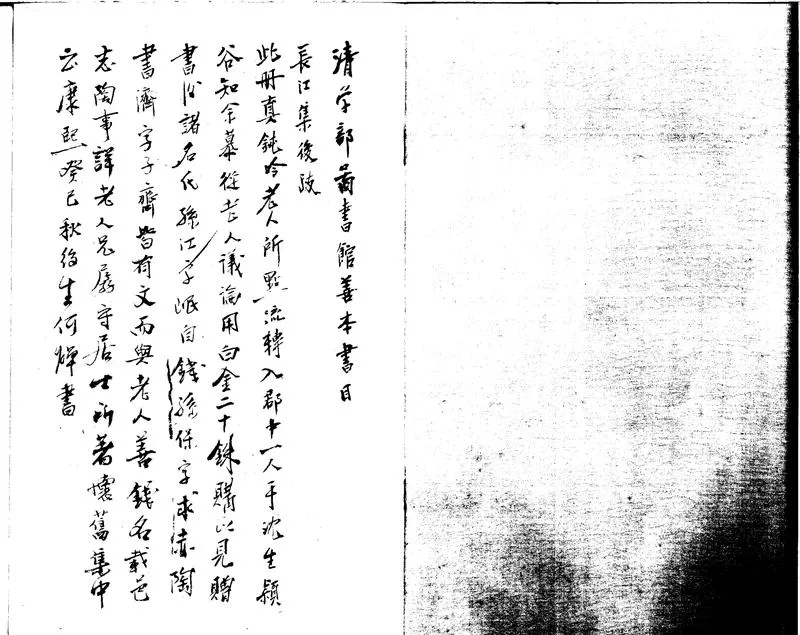 清学部啚書館善本書目
長江集後跋
此冊真鈍吟老人所點流轉入郡中一人手沈生穎
谷知余慕從老人議論用白金二十銖購以見贈
書後諸名氏孫江字岷自錢孫保字求赤陶
書濟字子齋皆有文而與老人善錢名載邑
志陶事詳老人兄孱守居士所著懷舊集中
云康熙癸巳秋後生何焯書